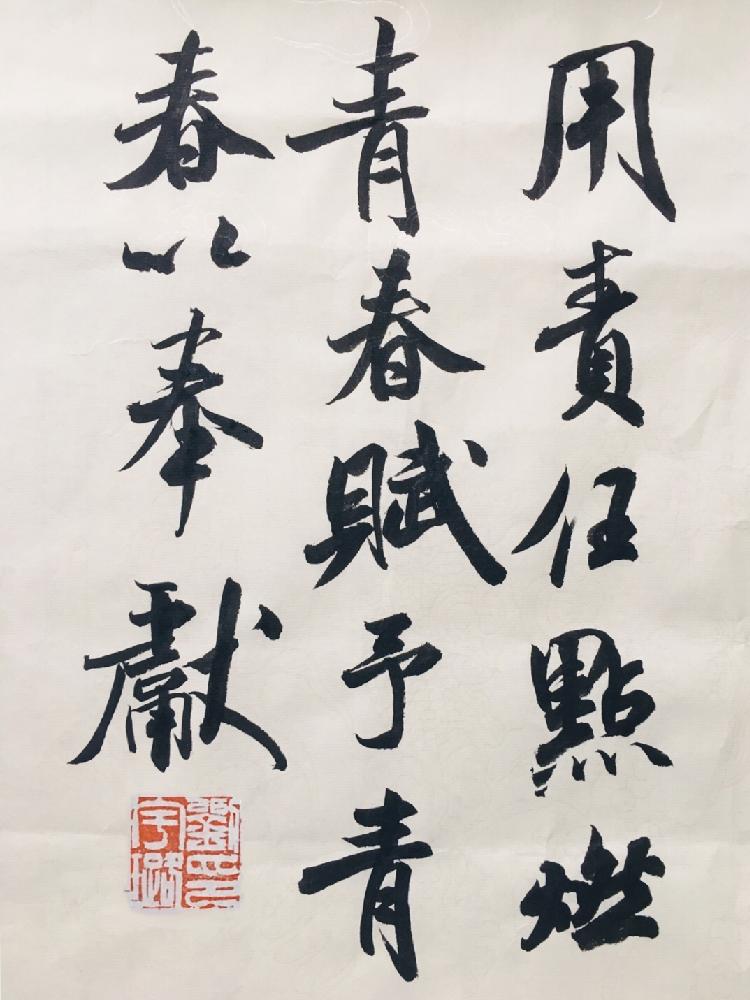 用責任點燃
青春賦予青
春以奉獻
劉印
宇璐